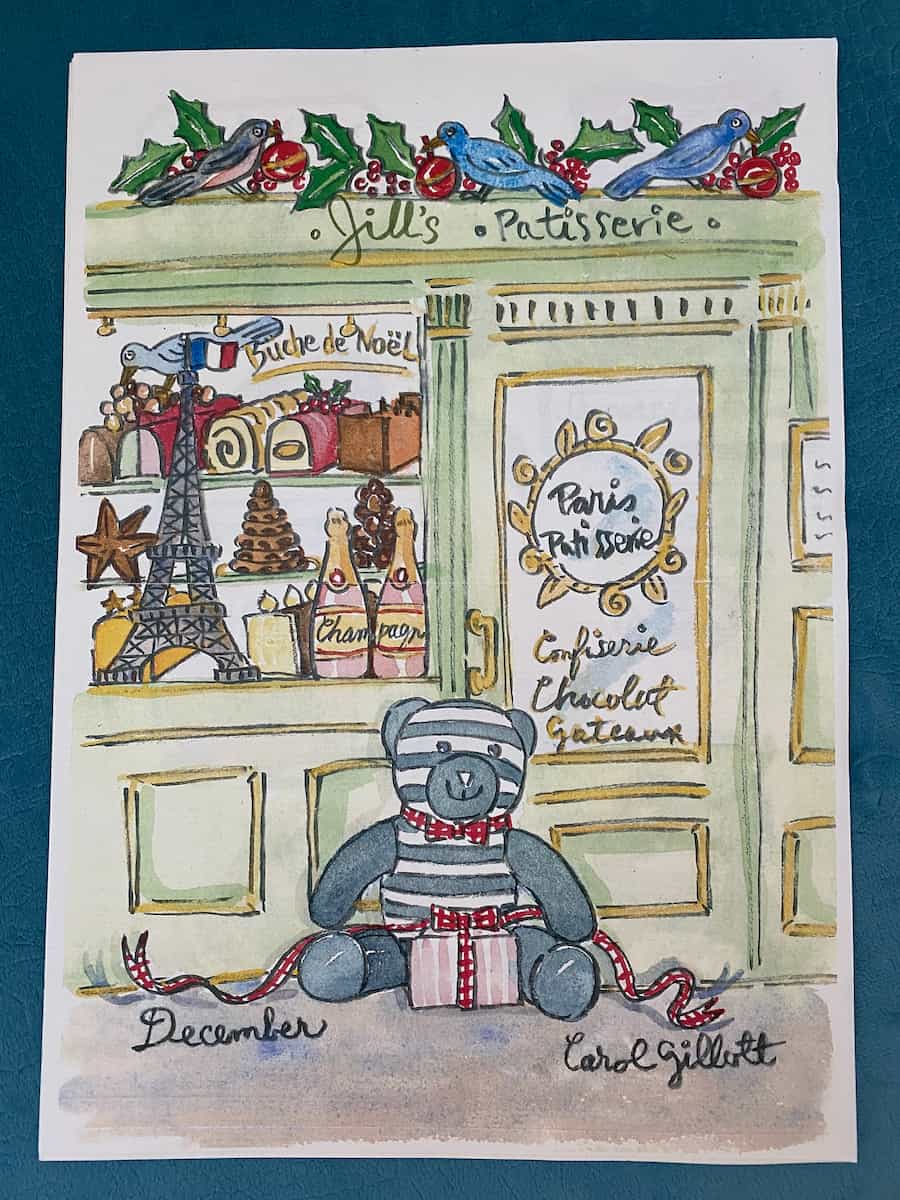 • Jill's • Patisserie •
Buche de Noël
Champagn
Paris
Patisserie
Confiserie
Chocolat
Gateaux
December
Carol Gillott